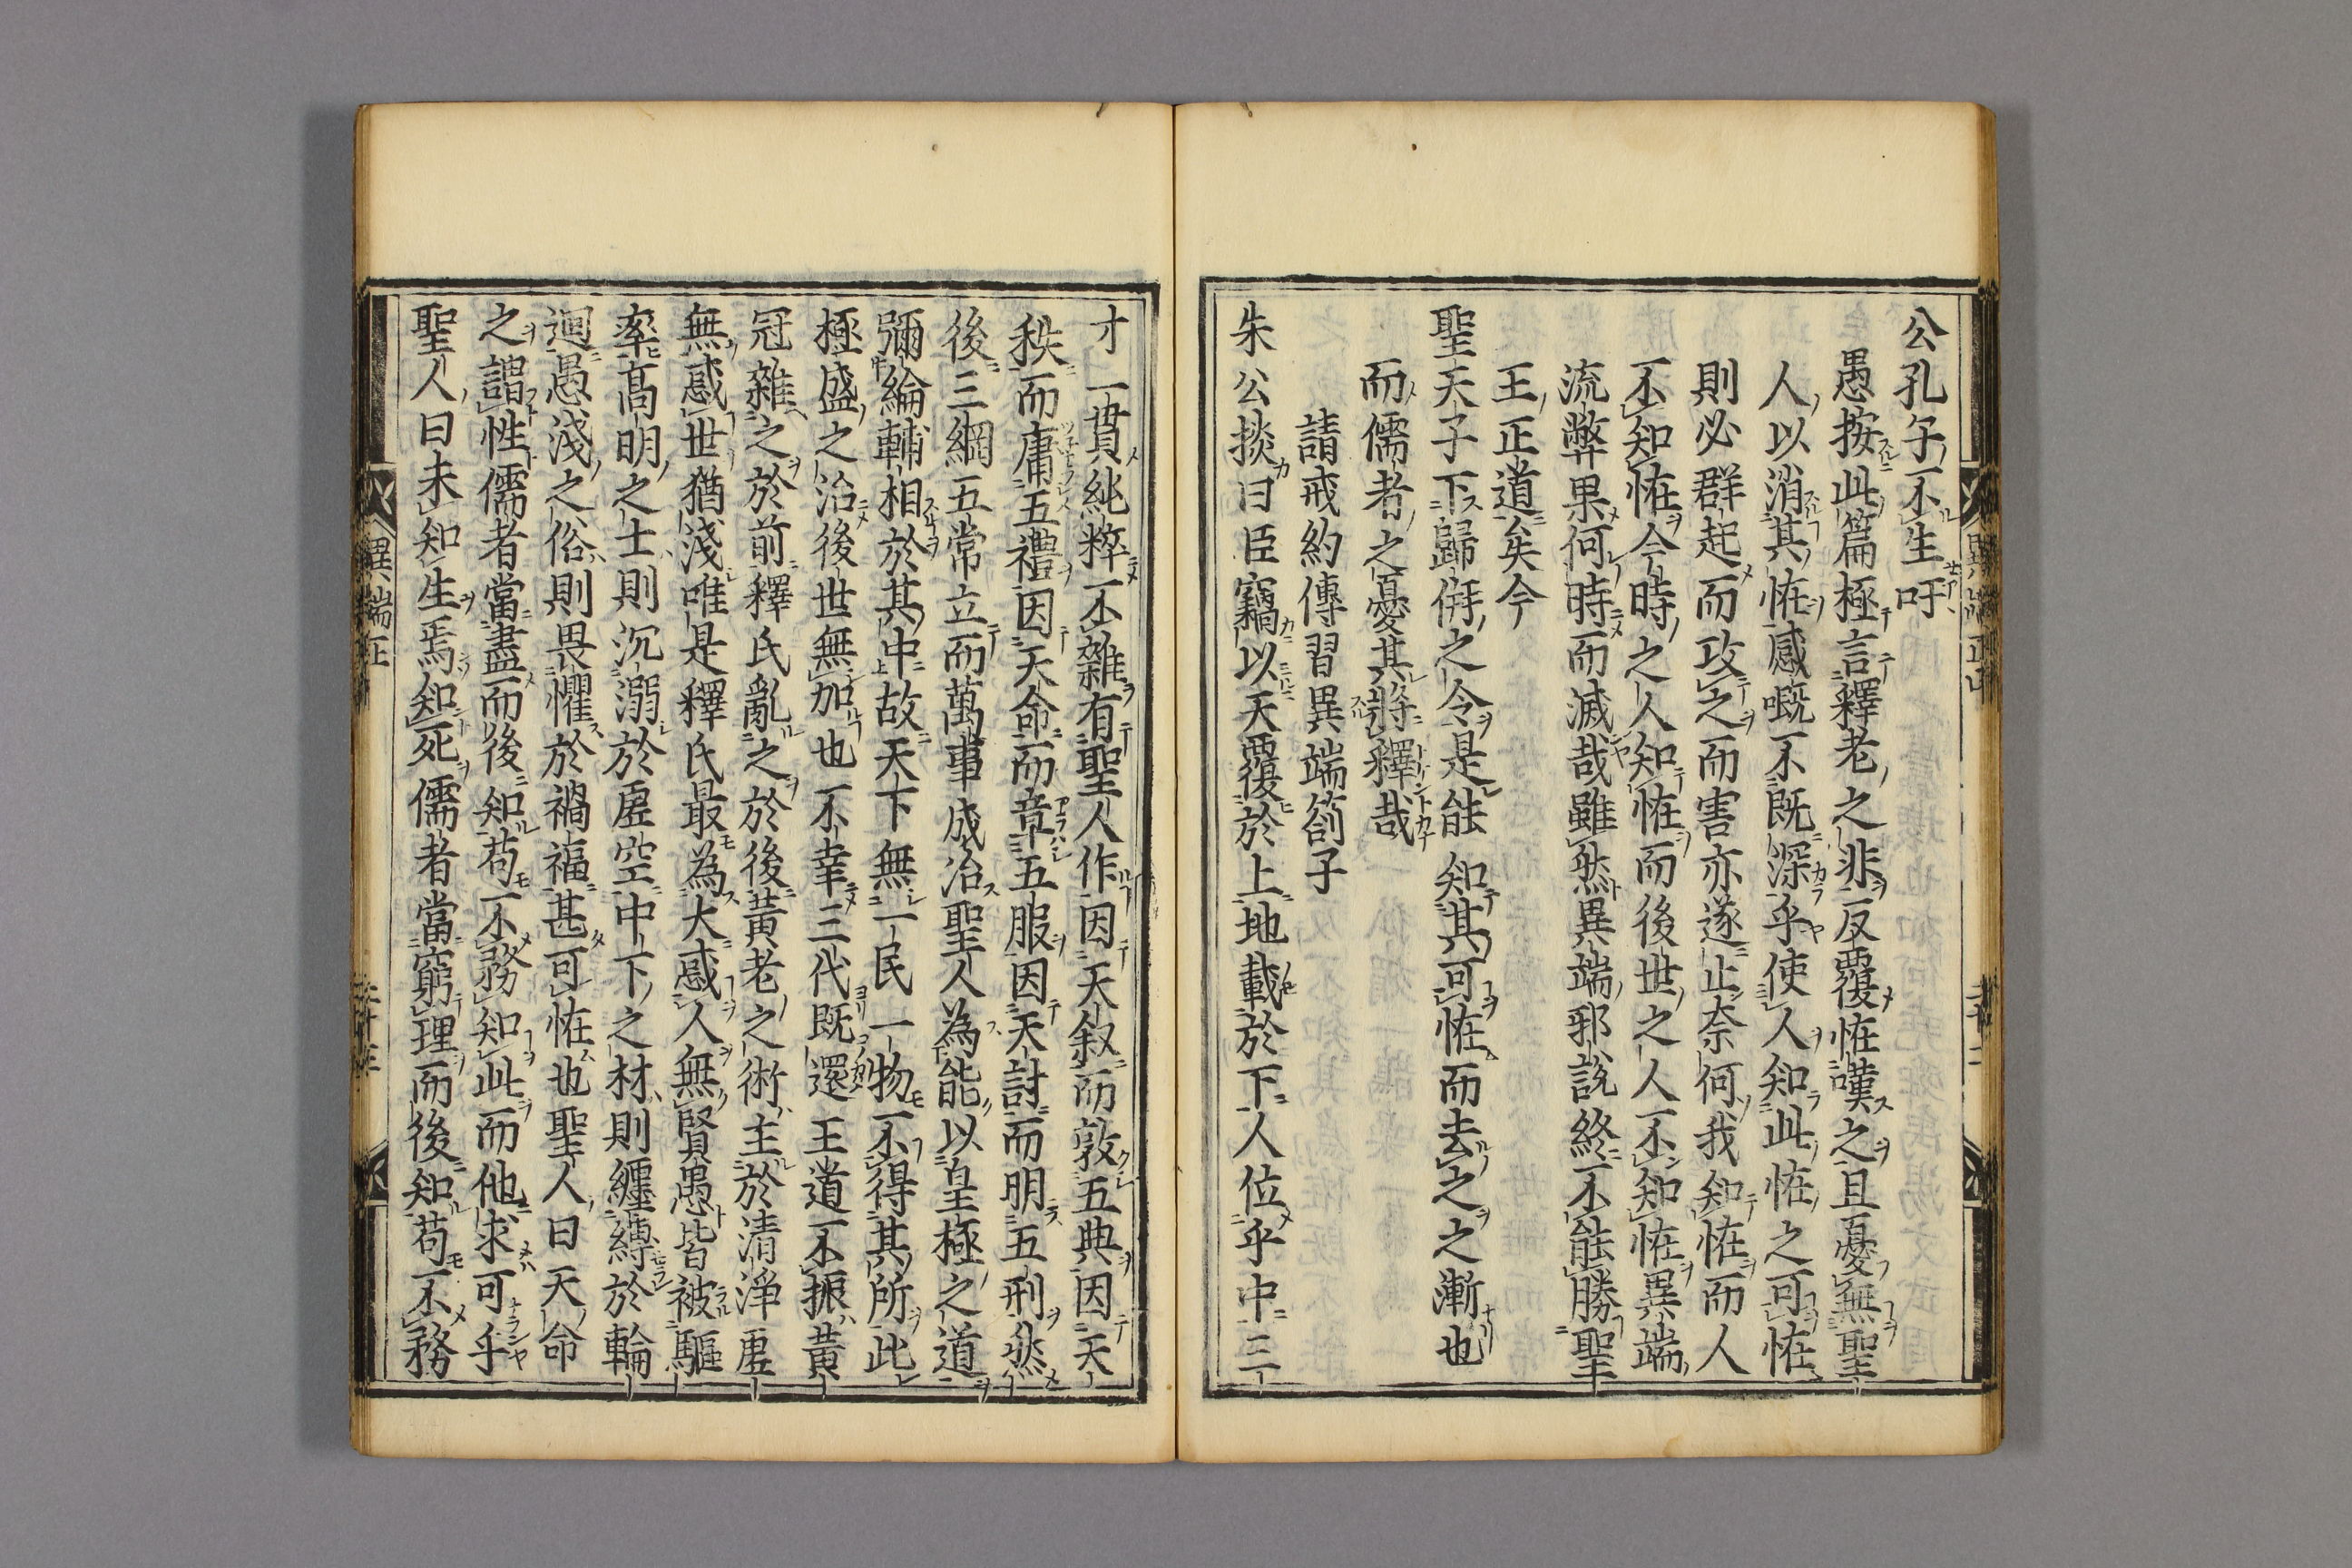 公孔子不生吁
愚按此篇極言釋老之非反覆恠嘆之且憂無聖
人以消其恠感嘅不既深乎使人知此恠之可恠
則必群起而攻之而害亦遂止奈何我知恠而人
不知恠今時之人知恠而後世之人不知恠異端
流弊果何時而滅哉雖然異端邪說終不能勝聖
王正道矣今
聖天子下歸併之令是能知其可恠而去之之漸也
而儒者之憂其將釋哉
請戒約傳習異端劄子
朱公掞曰臣竊以天覆於上地載於下人位乎中三
才一貫純粹不雜有聖人作因天叙而敦五典因天
秩而庸五禮因天命而章五服因天討而明五刑然
後三綱五常立而萬事成治聖人為能以皇極之道
彌綸輔相於其中故天下無一民一物不得其所此
極盛之治後世無加也不幸三代既還王道不振黃
冠雜之於前釋氏亂之於後黃老之術主於清淨虛
無惑世猶淺唯是釋氏最為大惑人無賢愚皆被驅
率高明之士則沉溺於虛空中下之材則纏縛於輪
迴愚淺之俗則畏懼於禍福甚可恠也聖人曰天命
之謂性儒者當盡而後知苟不務知此而他求可乎
聖人曰未知生焉知死儒者當窮理而後知苟不務
異端正